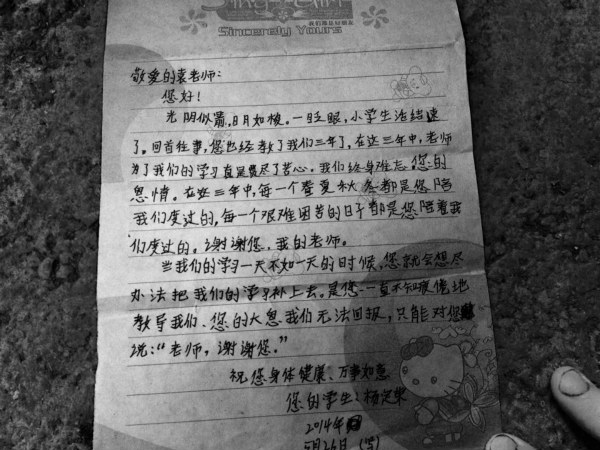 我们是友好朋友
Sincerely Yours
敬爱的袁老师：
您好！
光阴似箭，日月如梭。一眨眼，小学生活结速
了。回首往事，您也经教了我们三年了，在这三年中，老师
为了我们的学习真是费尽了苦心。我们终身难忘您的
恩情。在这三年中，每一个春夏秋冬都是您陪
我们度过的，每一个艰难困苦的日子都是您陪着我
们度过的。谢谢您，我的老师。
当我们的学习一天不如一天的时候，您就会想尽
办法把我们的学习补上去。是您一直不知疲倦地
教导我们、您的大恩我们无法回报，只能对您
说：“老师，谢谢您。”
祝您身体健康、万事如意
您的学生：杨
2014年
5月26日